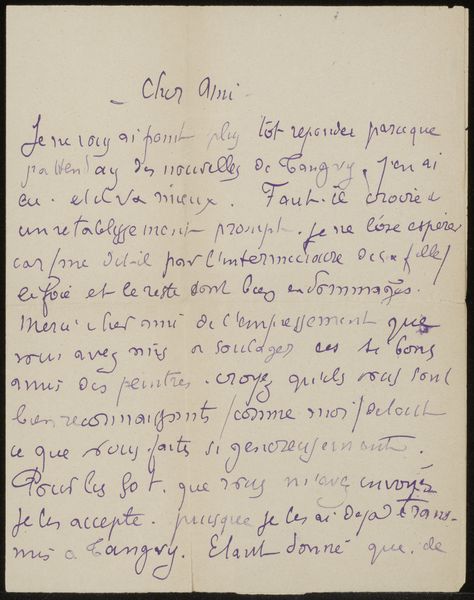 Cher Ami
Je ne vous ai point plus tôt repondu parceque
j'attendais des nouvelles de Tanguy, j'en ai
eu. et il va mieux. Faut-il croire a
un retablissement prompt. je ne l'ose esperer
car, me dit-il par l'intermediaire de sa fille,
le foie et le reste sont bien endommagés.
Merci cher ami de l'empressement que
vous avez mis a soulager ces si bons
amis des peintres. croyez qu'ils vous sont
bien reconnaissants, comme moi, de tout
ce que vous faits si genereusement.
Pour les 50 f. que vous m'avez envoyés
je les accepte. puisque je les ai deja trans-
mis a Tanguy. Etant donné que de